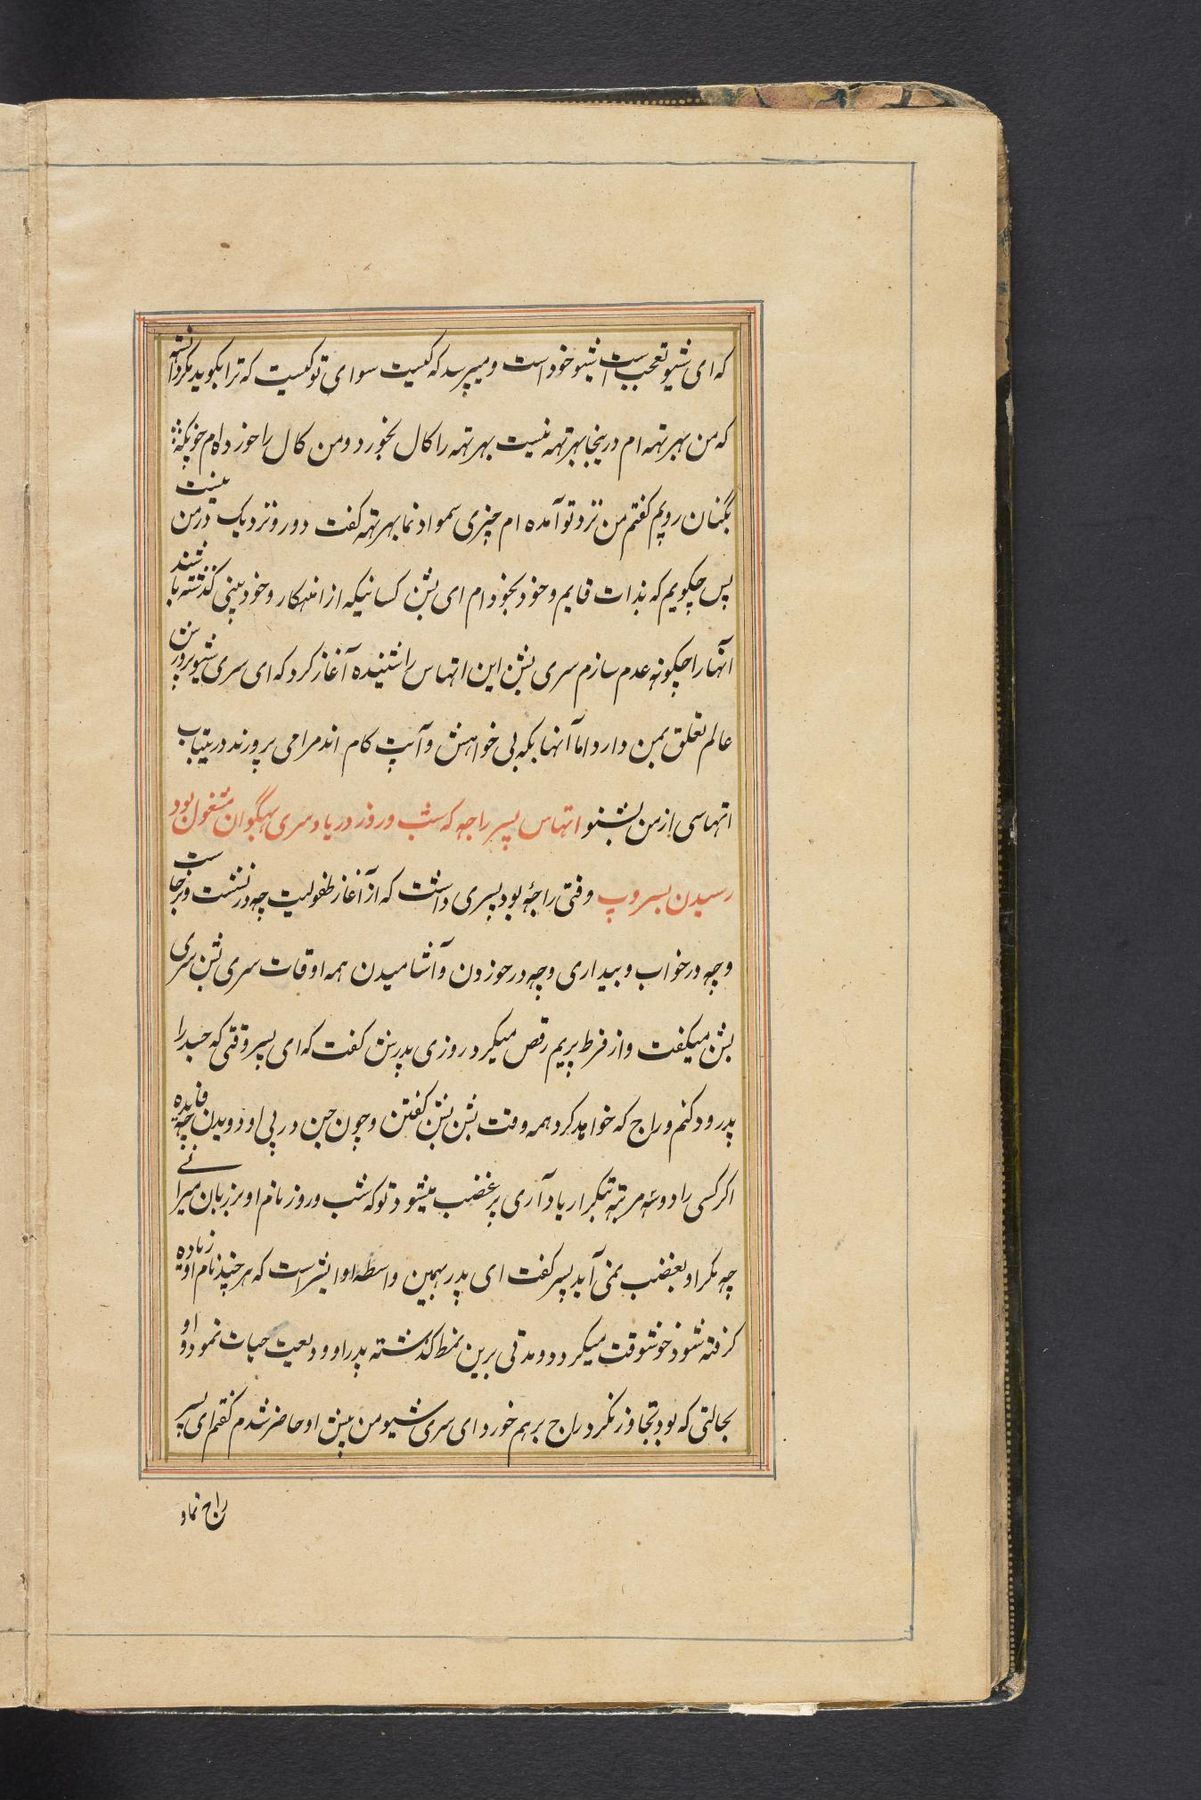 که ای شیو تعجب است شیو خود است و میپرسد که کیست سوای تو کیست که ترا بگوید مگر دانسته
که من بهرتهه ام درینجا بهرتهه نیست بهرتهه را کال بخورد و من کال را خورده ام
بگنان روپم گفتم من نزد تو آمده ام چیزی بمو ادنما بهرتهه گفت دور و نزدیک در من نیست
پس چگویم که بذات قایم و خود بخود ام ای بشن کسانیکه از اهنکار و خودبینی گذشته باشند
آنها را چگونه عدم سازم سری بشن این اتهاس را شنیده آغاز کرد که ای سری شیو پرورش
عالم تعلق بمن دارد اما آنها بکه بی خواهش و آپت کام اند مرا می پرورند درینباب
اتهاسی از من بشنو اتهاس پسر راجه که شب و روز در یاد سری بهگوان مشغول بود
رسیدن بسروپ وقتی راجهٔ بود پسری داشت که از آغاز طفولیت چه در نشست و برخاست
و چه در خواب و بیداری و چه در خوردن و آشامیدن همه اوقات سری بشن سری
بشن میگفت و از فرط پریم رقص میکرد روزی پدرش گفت که ای پسر وقتی که جسد را
پدرود کنم و راج که خواهد کرد همه وقت بشن بشن گفتن و چون جن در پی او دویدن چه فایده
اگر کسی را دو سه مرتبه بتکرار یاد آری پر غضب میشود تو که شب و روز نام او بر زبان میرانی
چه مگر او بغضب نمی آید پسر گفت ای پدر بهمین واسطه او ایشر است که هر چند نام او زیاده
گرفته شود خوشوقت میگردد و مدتی برین نمط گذشته پدر او ودیعت حیات نمود و او
بحالتی که بود تجاوز نکرد راج برهم خورد ای سری شیو من پیش او حاضر شدم گفتم ای پسر
راج نماد